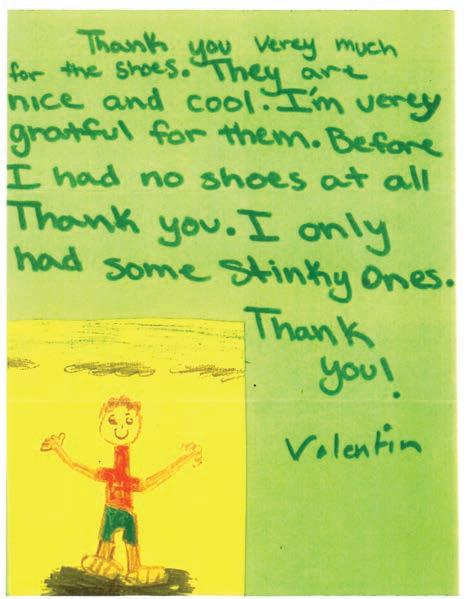 Thank you verey much
for the shoes. They are
nice and cool. I'm verey
gratful for them. Before
I had no shoes at all
Thank you. I only
had some Stinky Ones.
Thank
you!
Valentin